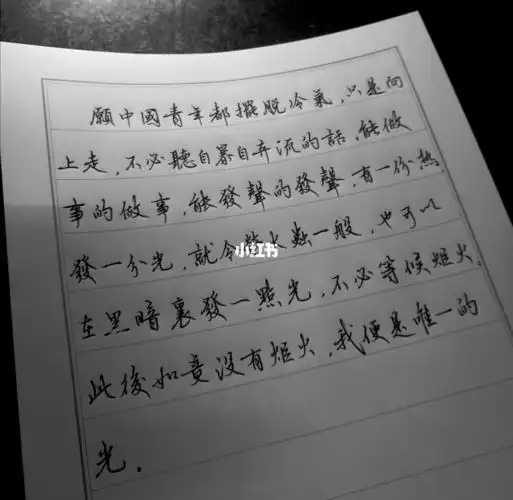 願中國青年都擺脫冷氣，只是向
上走，不必聽自暴自弃流的話，能做
事的做事，能發聲的發聲，有一份熱，
發一分光，就令螢火蟲一般，也可以
在黑暗裏發一點光，不必等候炬火，
此後如竟沒有炬火，我便是唯一的
光。
小红书